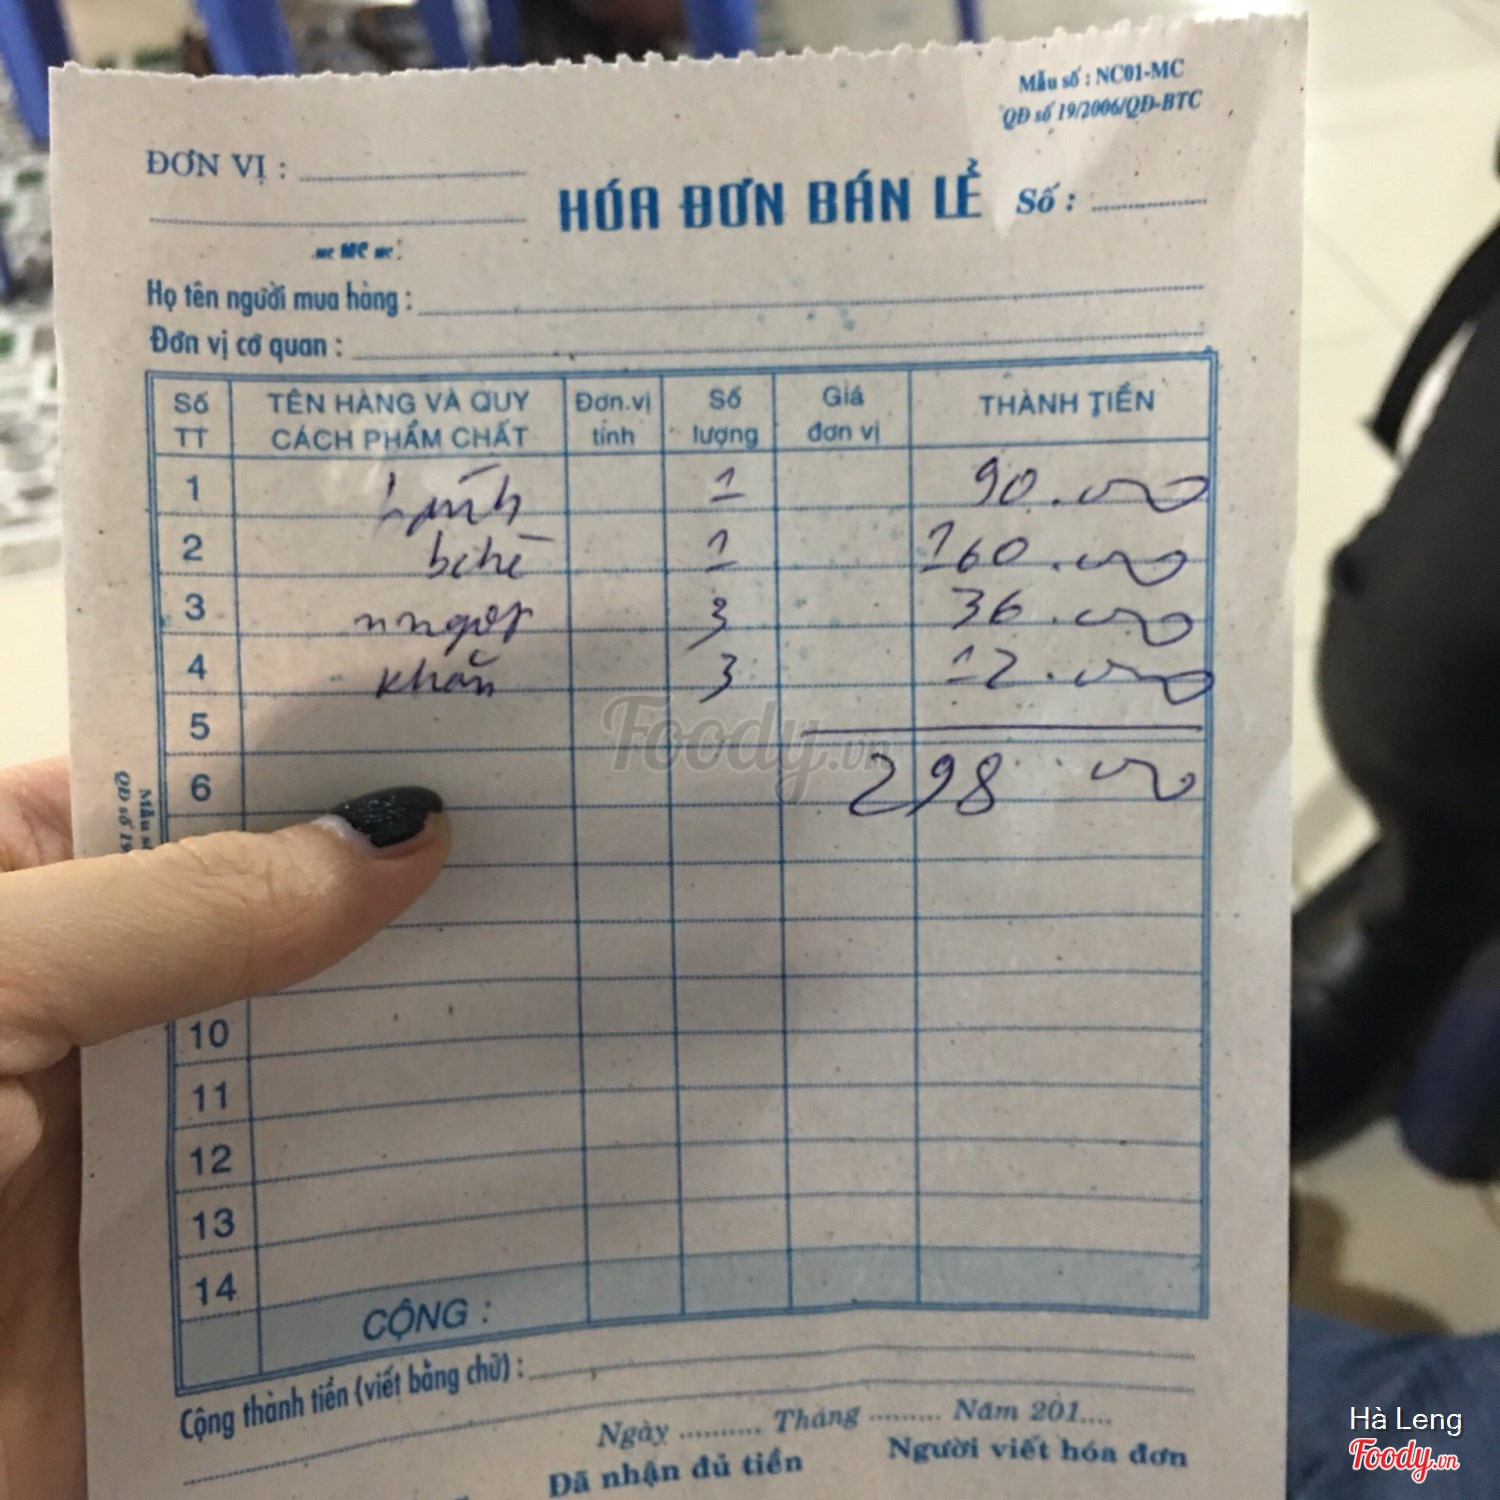 Mẫu số : NC01-MC
QĐ số 19/2006/QĐ-BTC
ĐƠN VỊ :
HÓA ĐƠN BÁN LẺ Số :
MC MC MC
Họ tên người mua hàng :
Đơn vị cơ quan :
Số TT TÊN HÀNG VÀ QUY CÁCH PHẨM CHẤT Đơn.vị tính Số lượng Giá đơn vị THÀNH TIỀN
1 1 90.000
2 1 160.000
3 nngọt 3 36.000
4 khăn 3 12.000
5
6 298 000
10
11
12
13
14
CỘNG :
Cộng thành tiền (viết bằng chữ) :
Ngày .......... Tháng ......... Năm 201....
Đã nhận đủ tiền Người viết hóa đơn
Mẫu s
QĐ số 19
Foody.vn
Hà Leng
Foody.vn